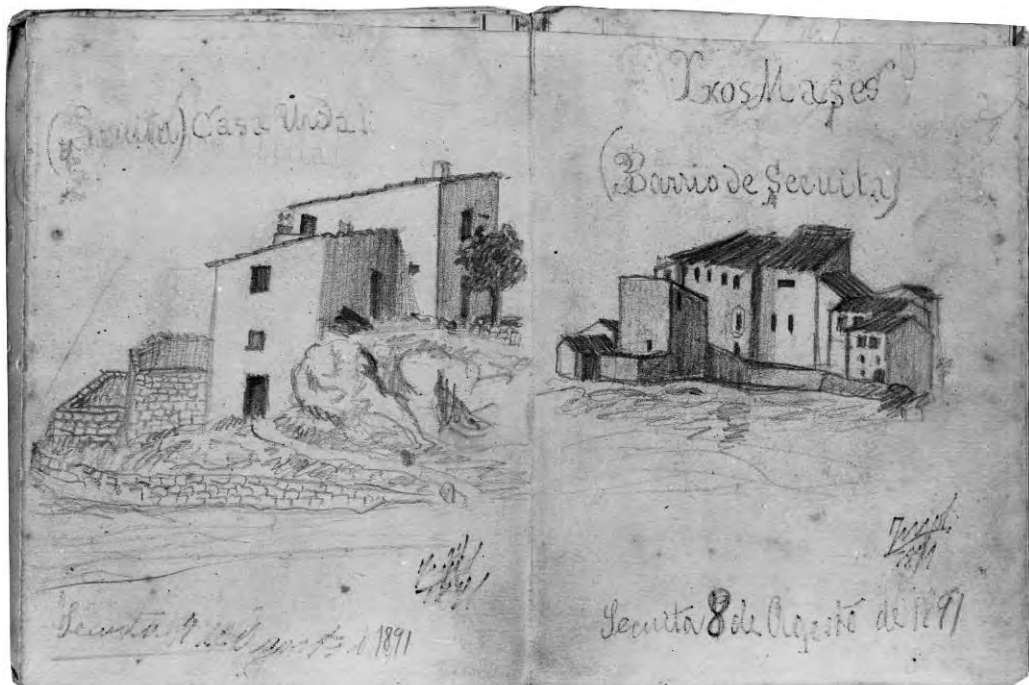 (Secuita) Casa Vidal
Secuita 9 de Agosto d 1891
Mases
(Barrio de Secuita)
1891
Secuita 8 de Agosto de 1891